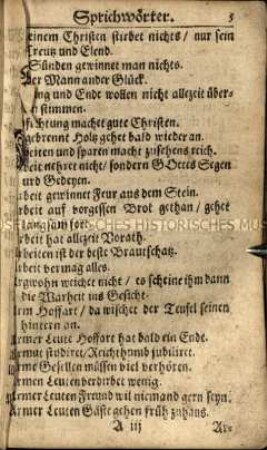 Sprichwörter. 5
einem Christen stirbet nichts / nur sein
Creutz und Elend.
Sünden gewinnet man nichts.
der Mann ander Glück.
und Ende wollen nicht allezeit über-
stimmen.
fechtung machet gute Christen.
gebrennt Holtz gehet bald wieder an.
beiten und sparen macht zusehens reich.
beit nehret nicht / sondern GOttes Segen
und Gedeyen.
rbeit gewinnet Feur aus dem Stein.
rbeit auf vorgessen Brot gethan / gehet
langsam fort.
rbeit hat allezeit Vorath.
rbeiten ist der beste Brautschatz.
rbeit vermag alles.
rgwohn weichet nicht / es scheine ihm dann
die Warheit ins Gesicht.
Arm Hoffart / da wischet der Teufel seinen
hintern an.
Armer Leute Hoffart hat bald ein Ende.
Armut studiret / Reichthumb jubiliret.
Arme Gesellen müssen viel verhören.
Armen Leuten verdirbet wenig.
Armer Leuten Freund wil niemand gern seyn.
Armer Leuten Gäste gehen früh zuhaus.
A iij Ar=